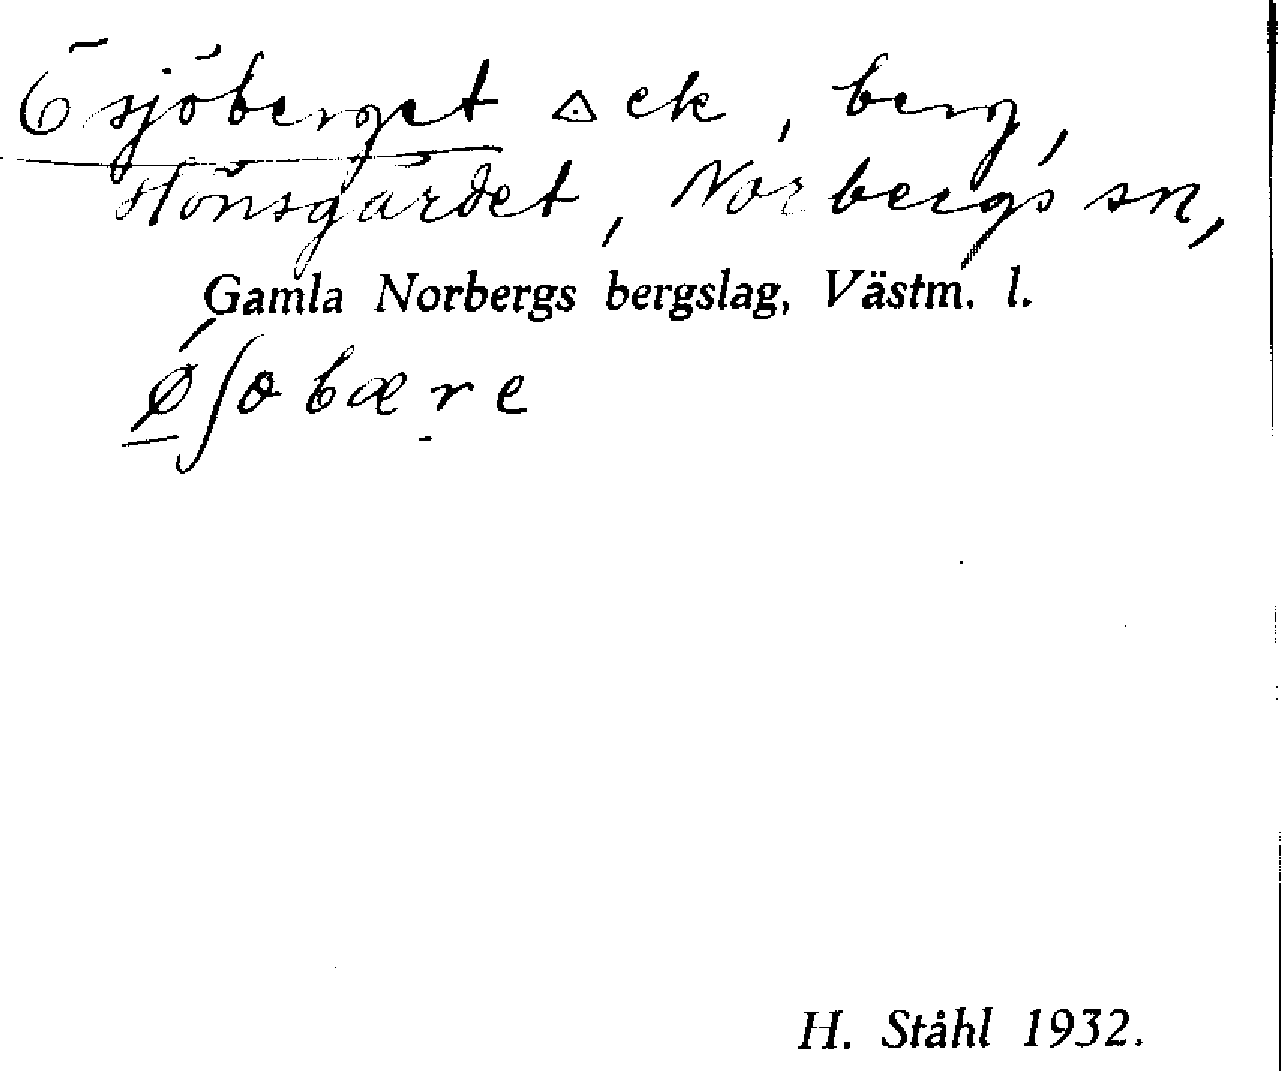 Ösjöberget ek, berg,
Hönsgärdet, Norbergs sn,
Gamla Norbergs bergslag, Västm. l.
H. Ståhl 1932.